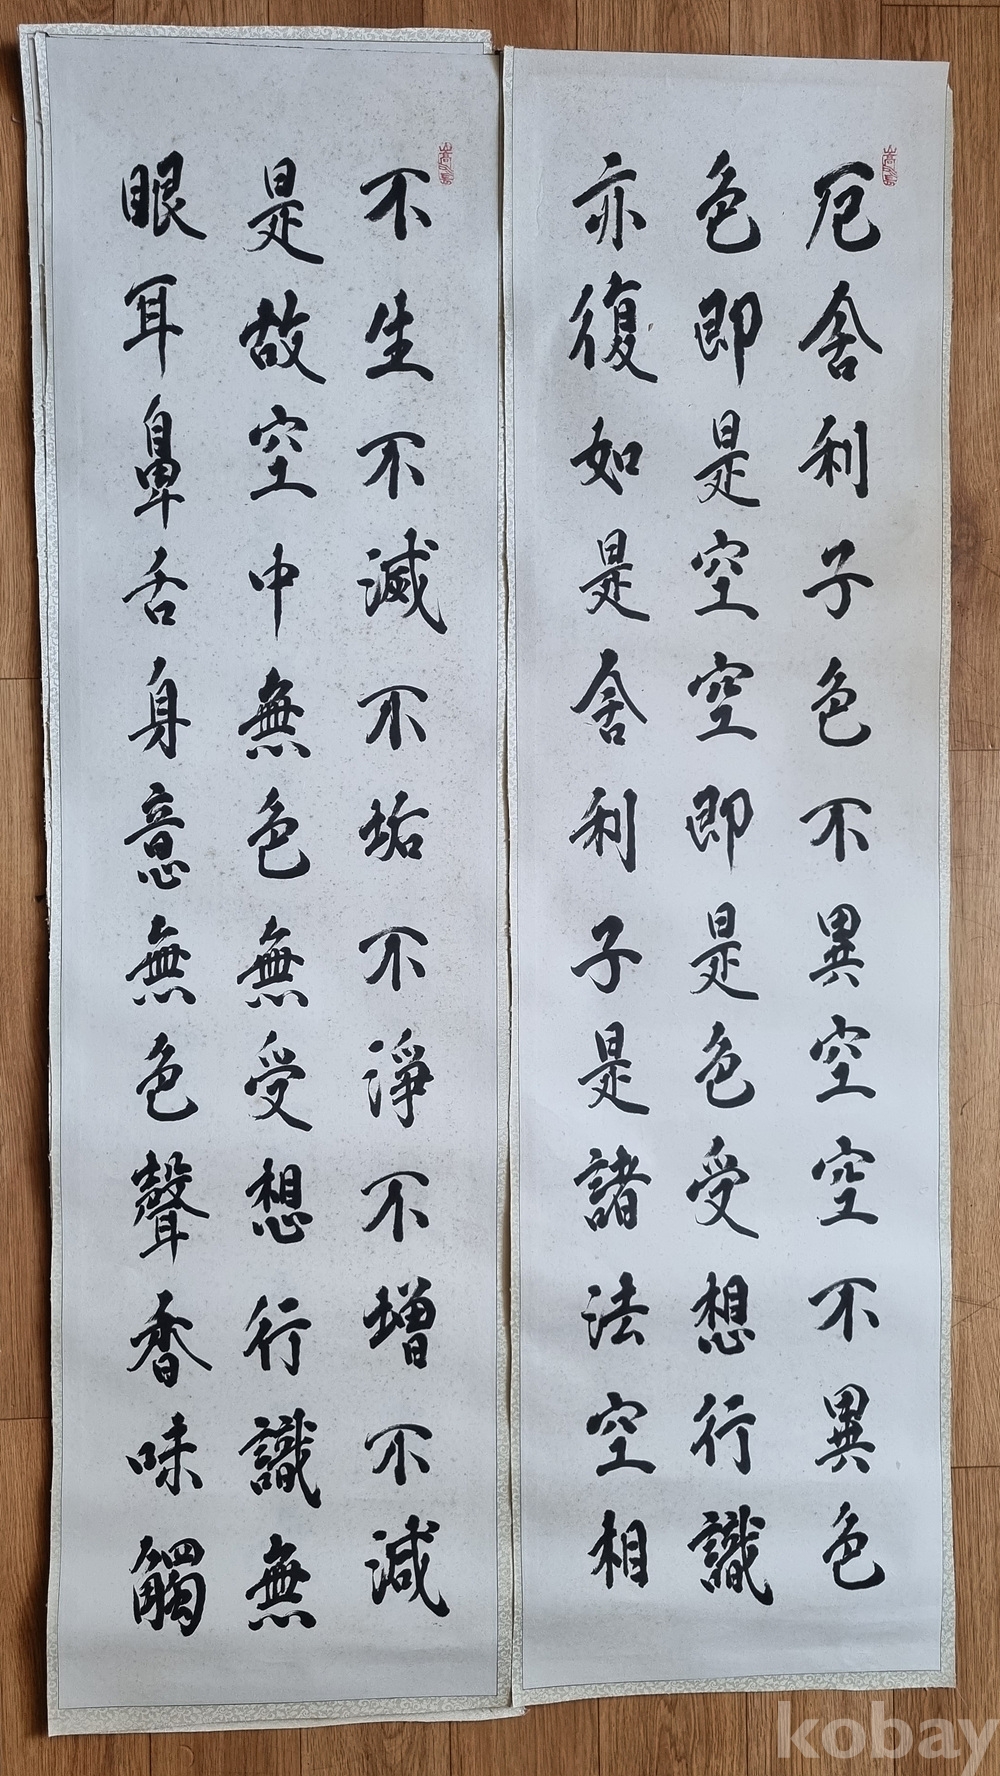 厄舍利子色不異空空不異色
色即是空空即是色受想行識
亦復如是舍利子是諸法空相
不生不滅不垢不淨不增不減
是故空中無色無受想行識無
眼耳鼻舌身意無色聲香味觸
kobay